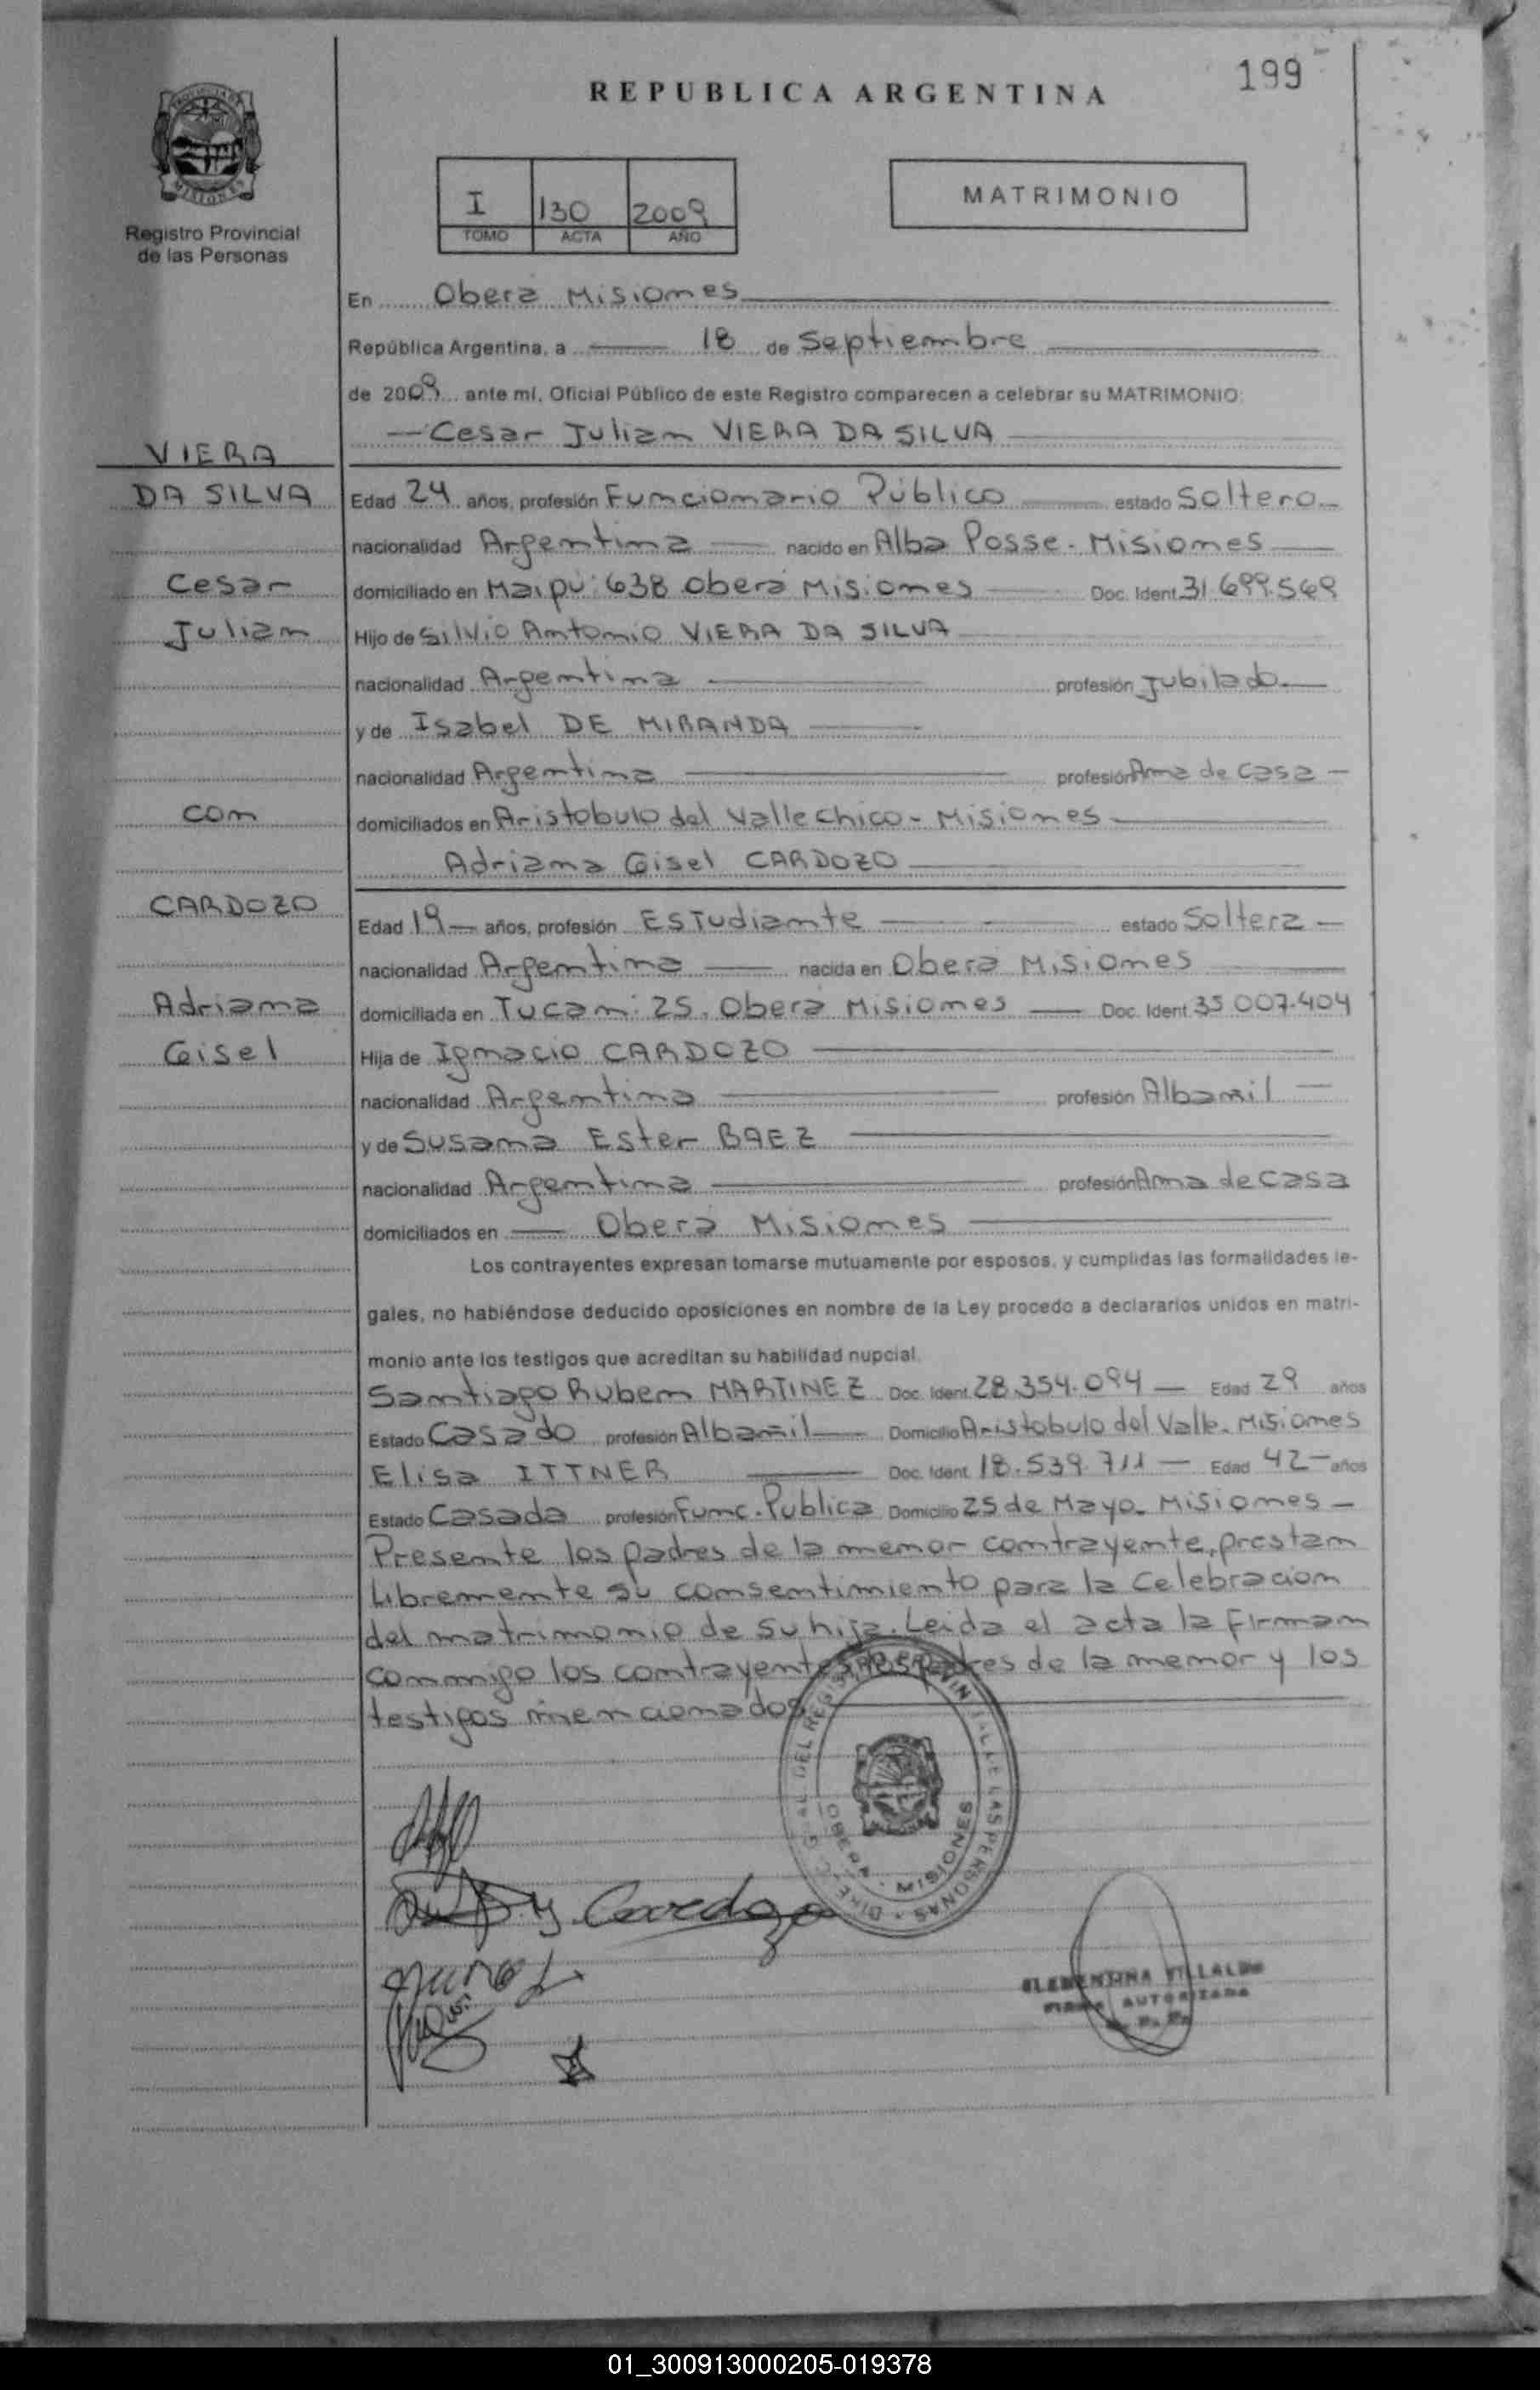 199
REPUBLICA ARGENTINA
I 130 2009
TOMO ACTA AÑO
MATRIMONIO
Registro Provincial
de las Personas
En Oberá Misiones
República Argentina, a 18 de Septiembre
de 2009 ante mí, Oficial Público de este Registro comparecen a celebrar su MATRIMONIO:
Cesar Julian VIERA DA SILVA
VIERA
DA SILVA
Cesar
Julian
Edad 24 años, profesión Funcionario Público estado Soltero
nacionalidad Argentina nacido en Alba Posse - Misiones
domiciliado en Maipú: 638 Oberá Misiones Doc. Ident. 31.699.569
Hijo de Silvio Antonio VIERA DA SILVA
nacionalidad Argentina profesión Jubilado
y de Isabel DE MIRANDA
nacionalidad Argentina profesión Ama de Casa
con
domiciliados en Aristobulo del Valle Chico - Misiones
Adriana Gisel CARDOZO
CARDOZO
Adriana
Gisel
Edad 19 años, profesión Estudiante estado Soltera
nacionalidad Argentina nacida en Oberá Misiones
domiciliada en Tucan: 25. Oberá Misiones Doc. Ident. 35.007.404
Hija de Ignacio CARDOZO
nacionalidad Argentina profesión Albañil
y de Susana Ester BAEZ
nacionalidad Argentina profesión Ama de Casa
domiciliados en Oberá Misiones
Los contrayentes expresan tomarse mutuamente por esposos, y cumplidas las formalidades le-
gales, no habiéndose deducido oposiciones en nombre de la Ley procedo a declararlos unidos en matri-
monio ante los testigos que acreditan su habilidad nupcial.
Santiago Ruben MARTINEZ Doc. Ident. 28.354.094 Edad 29 años
Estado Casado profesión Albañil Domicilio Aristobulo del Valle. Misiones
Elisa ITTNER Doc. Ident. 18.539.711 Edad 42 años
Estado Casada profesión Func. Publica Domicilio 25 de Mayo. Misiones
Presente los padres de la menor contrayente, prestan
libremente su consentimiento para la Celebracion
del matrimonio de su hija. Leida el acta la firman
conmigo los contrayentes, los padres de la menor y los
testigos mencionados
OBERA - MISIONES
Cardozo
CLEMENTINA VILLALBA
FIRMA AUTORIZADA
01_300913000205-019378